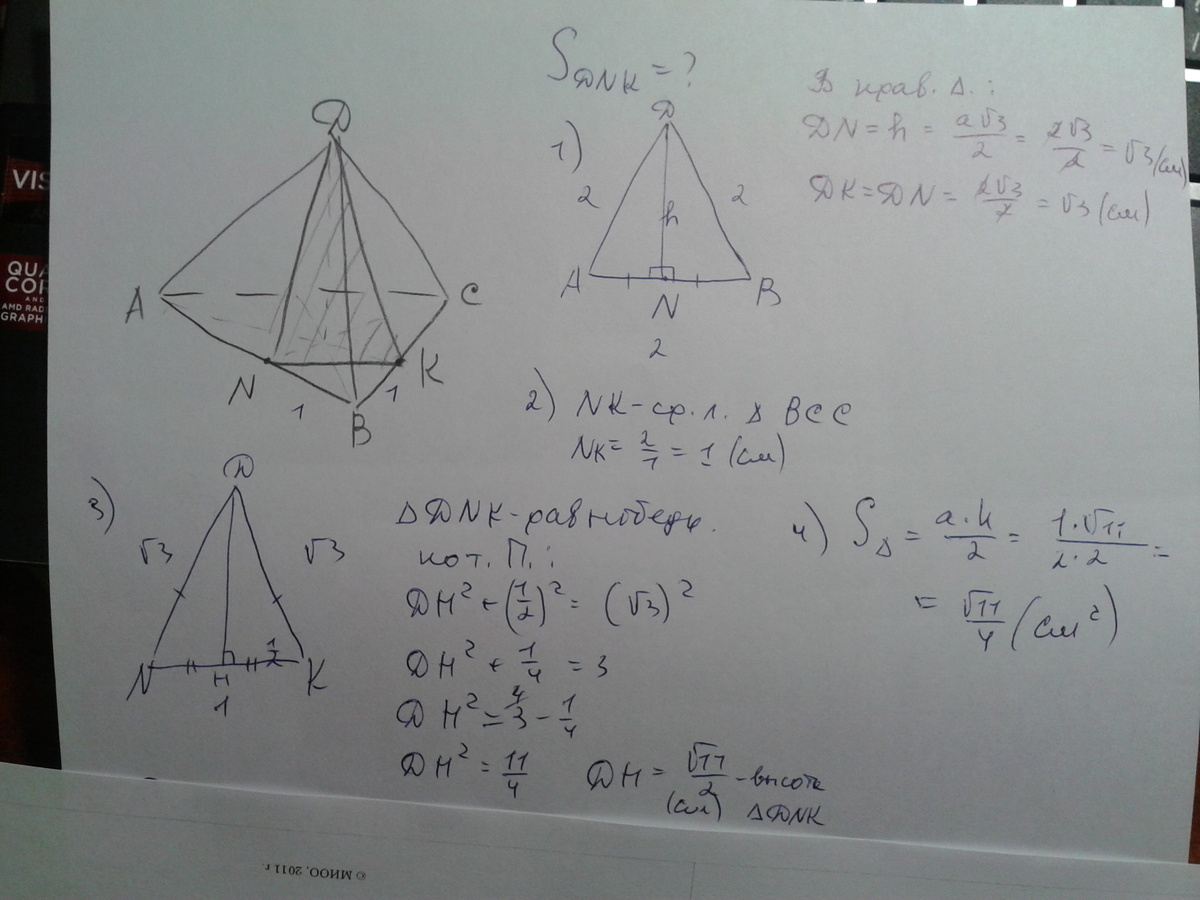 S DNK = ?
D
A
C
N
K
1
1
B
1)
D
2
2
h
A
N
B
2
В прав. Δ.:
DN = h = a√3/2 = 2√3/2 = √3 (см)
DK = DN = 2√3/2 = √3 (см)
2) NK - ср. л. Δ
NK = 2/1 = 1 (см)
3)
D
√3
√3
N
H
1/2
K
1
Δ DNK - равнобедр.
по т. П.:
DH² + (1/2)² = (√3)²
DH² + 1/4 = 3
DH² = 3 - 1/4
DH² = 11/4
DH = √11/2 - высота
(см) Δ DNK
4) S Δ = a·h/2 = 1·√11/2·2 =
= √11/4 (см²)
VIS
QUA
COR
AND
AMD RAD
GRAPHI
© МИОО, 2011 г